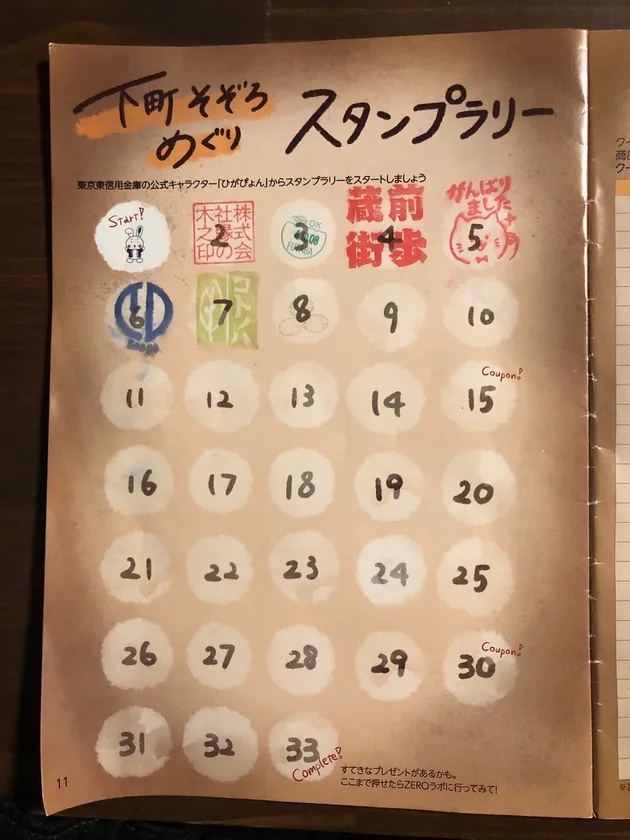 下町そぞろ
めぐり
スタンプラリー
東京東信用金庫の公式キャラクター「ひがぴょん」からスタンプラリーをスタートしましょう
Start!
株式会
社縁の
木之印
2
OK
3
蔵前
街歩
4
がんばり
ました
5
6
コトハ
7
8
9
10
11
12
13
14
Coupon!
15
16
17
18
19
20
21
22
23
24
25
26
27
28
29
Coupon!
30
31
32
33
Complete!
すてきなプレゼントがあるかも。
ここまで押せたらZEROラボに行ってみて!
11
商品